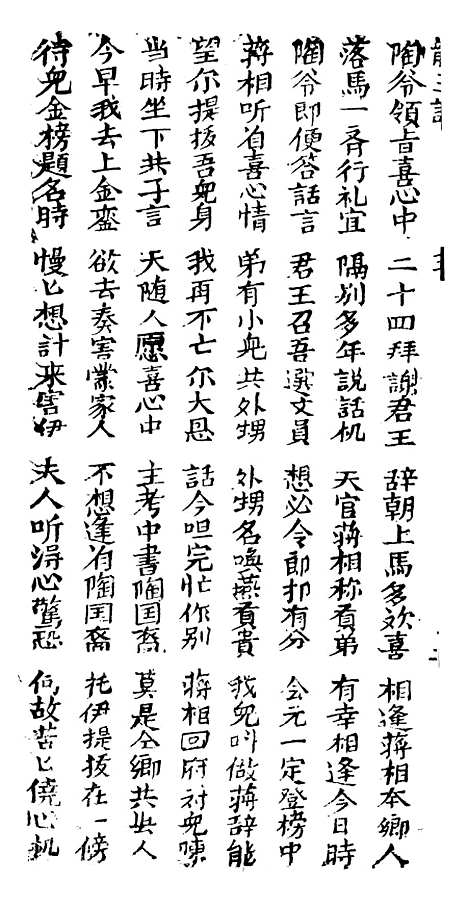 陶爷領旨喜心中 二十四拜謝君王 辞朝上馬多欢喜 相逢蒋相本鄉人
落馬一齐行礼宜 隔别多年説話机 天官蒋相称贤弟 有幸相逢今日時
陶爷即便答話言 君王召吾選文員 想必令郎抑有分 会元一定登榜中
蒋相听着喜心情 弟有小兒共外甥 外甥名喚燕贡貴 我兒叫做蒋辞能
望尔提拔吾兒身 我再不亡尔大恩 話今呾完忙作别 蒋相回府対兒陳
当時坐下共子言 天随人愿喜心中 主考中書陶国裔 莫是仝鄉共此人
今早我去上金銮 欲去奏害業家人 不想逢着陶国裔 托伊提拔在一傍
待兒金榜題名時 慢匕想計来害伊 夫人听得心驚恐 何故苦匕僥心机